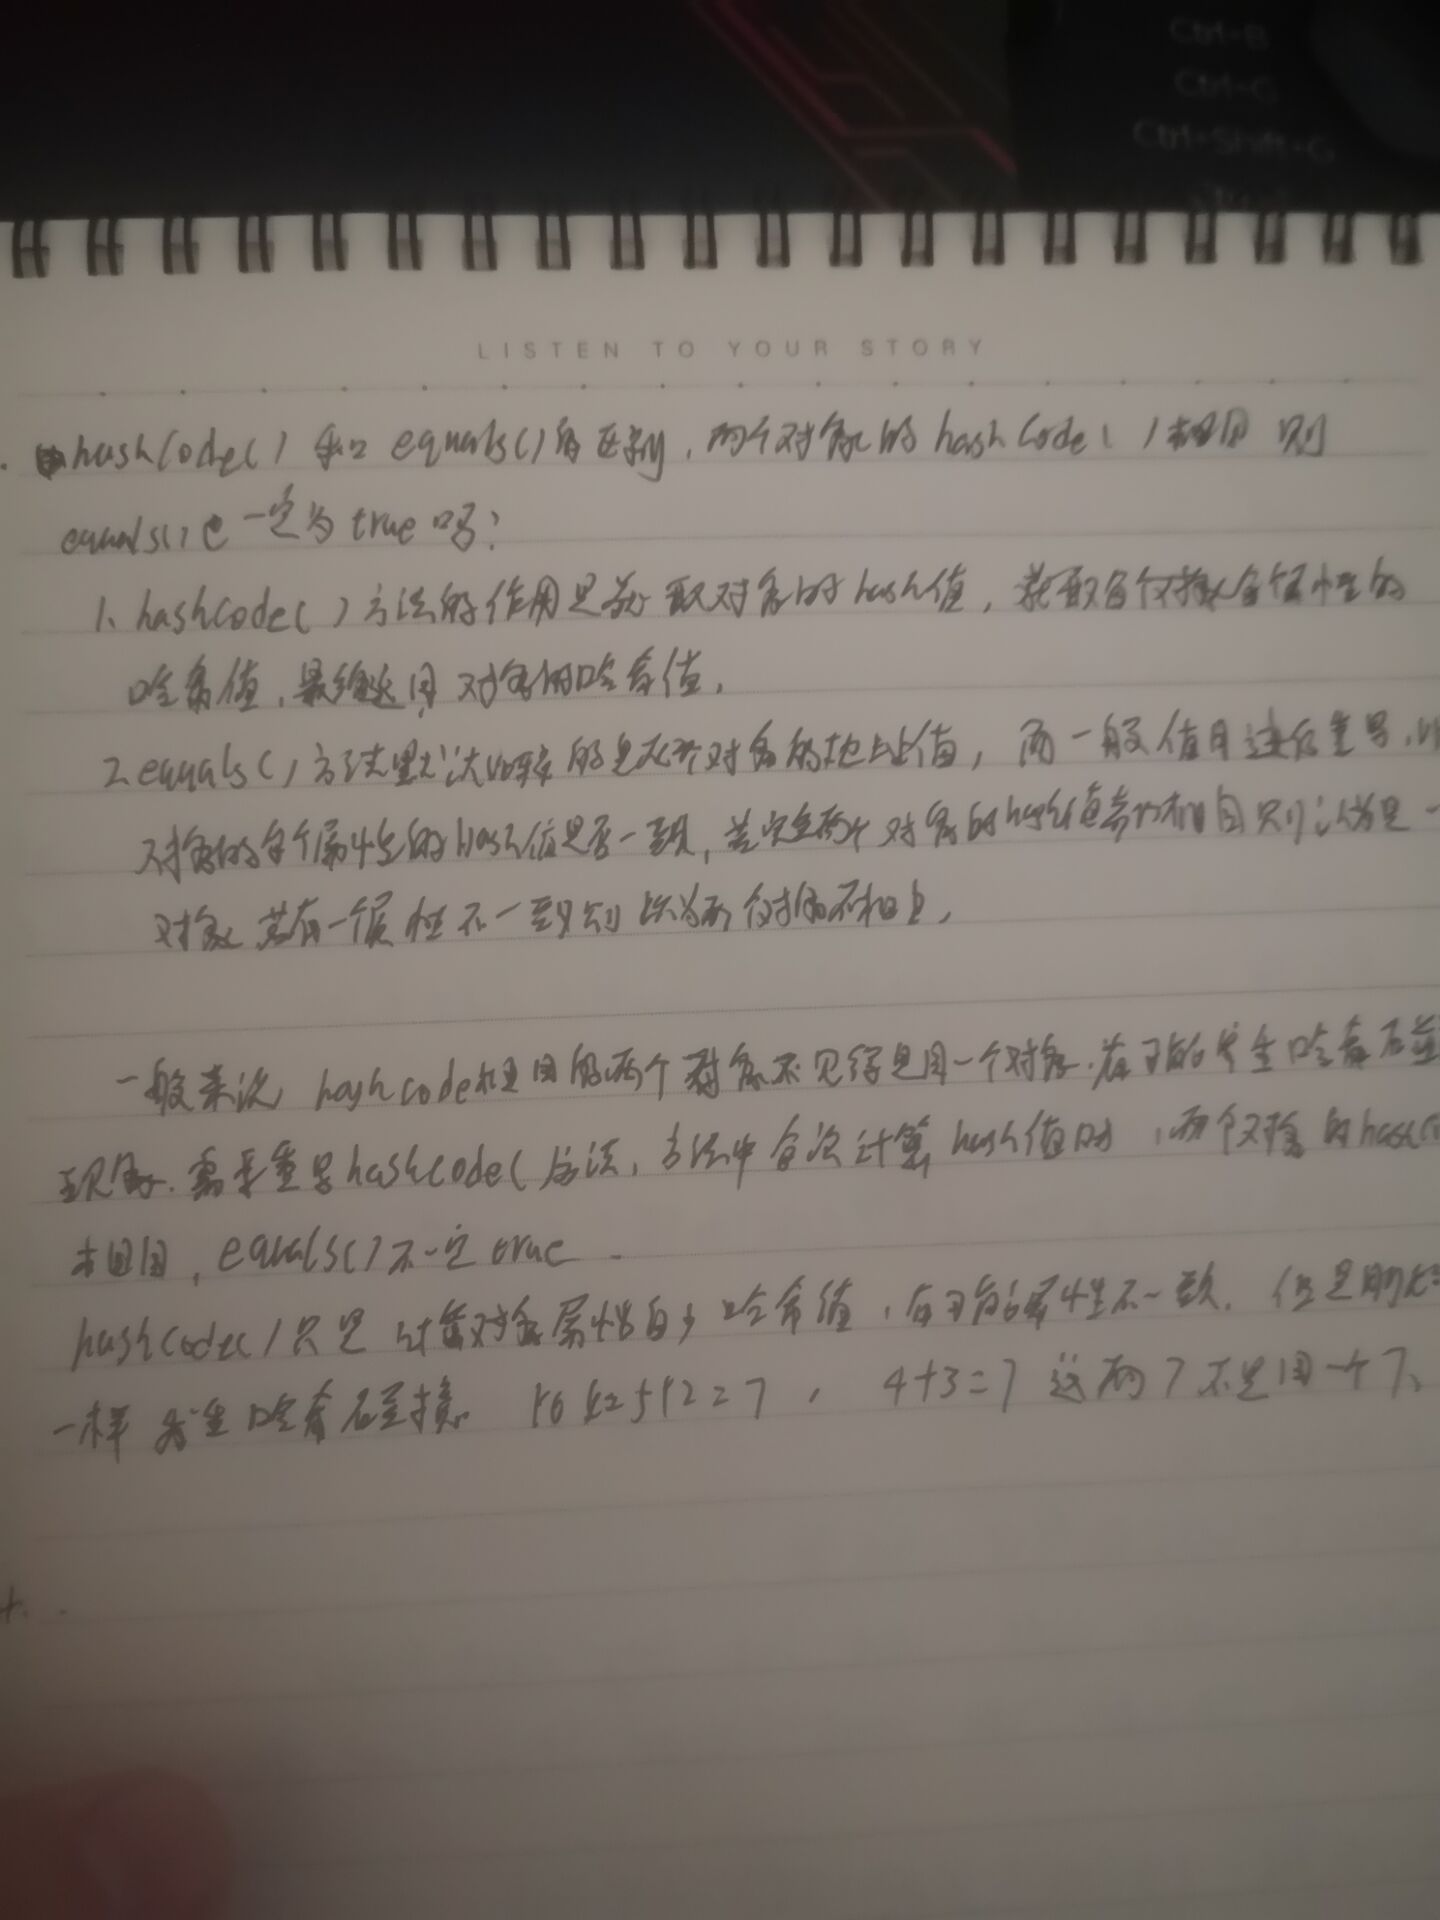 Ctrl+B
Ctrl+G
Ctrl+Shift+G
LISTEN TO YOUR STORY
hashCode()和equals()的区别,两个对象的hashCode()相同则
equals()也一定为true吗?
1、hashCode()方法的作用是获取对象的hash值,获取每个对象各个属性的
哈希值,最终返回对象的哈希值,
2、equals()方法默认比较的是两个对象的地址值,而一般使用进行重写,
对象的每个属性的Hash值是否一致,若完全两个对象的hash值都相同则认为是一
对象,若有一个属性不一致则认为两个对象不相等,
一般来说 hashcode相同的两个对象不见得是同一个对象.有可能发生哈希碰
现象.需要重写hashCode()方法,方法中每次计算hash值时,两个对象的hashCo
相同,equals()不一定true
hashCode()只是计算对象属性的哈希值,有可能属性不一致.但是
一样 发生哈希碰撞. 5+2=7, 4+3=7 这两7不是同一个7、